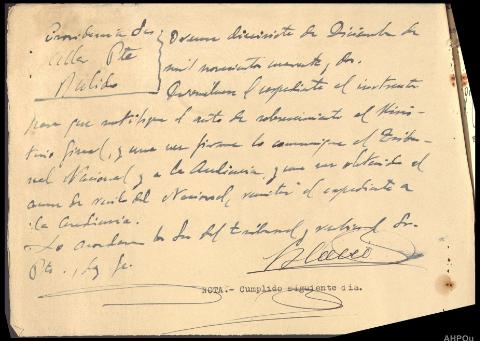 Providencia Sres
Pte
Pulido
Orense diecisiete de Diciembre de
mil novecientos cuarenta y dos.
Devuelvase el expediente al instructor
para que notifique el auto de sobreseimiento al Minis-
terio fiscal, y una vez firme lo comunique al Tribu-
nal Nacional y a la Audiencia, y una vez obtenido el
acuse de recibo del Nacional, remitir el expediente a
la Audiencia.
Lo acordaron los Sres del tribunal y rubrica el Sr.
Pte., doy fe.
NOTA.- Cumplido siguiente dia.
AHPOu